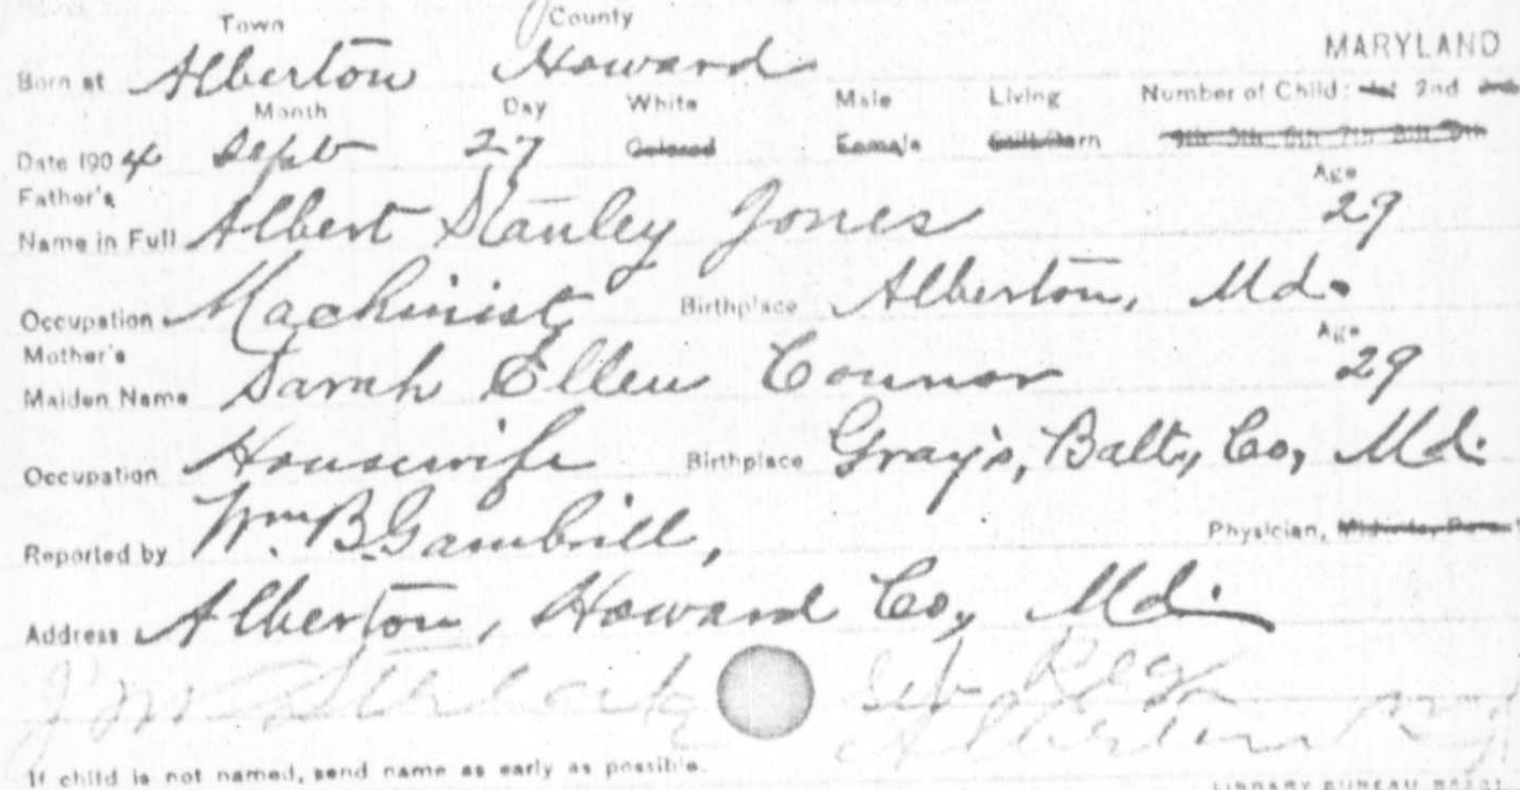 Town County
MARYLAND
Born at Alberton Howard
Month Day White Male Living Number of Child: 1st 2nd 3rd
Date 1904 Sept 27 Colored Female Stillborn 4th 5th 6th 7th 8th 9th
Father's Age
Name in Full Albert Stanley Jones 29
Occupation Machinist Birthplace Alberton, Md.
Mother's Age
Maiden Name Sarah Ellen Connor 29
Occupation Housewife Birthplace Gray's, Balt, Co, Md.
Reported by Wm. B. Gambrill, Physician, Midwife,
Address Alberton, Howard Co, Md.
Alberton
If child is not named, send name as early as possible.
LIBRARY BUREAU